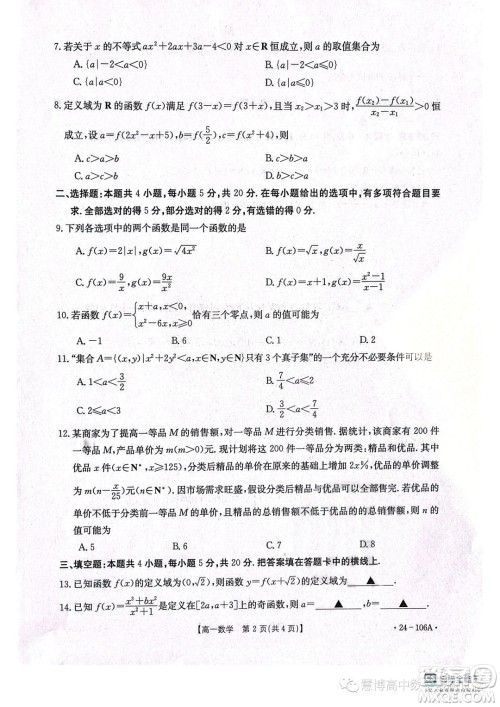 7. 若关于 x 的不等式 ax²+2ax+3a-4<0 对 x∈R 恒成立,则 a 的取值集合为
A. {a|-2<a<0} B. {a|-2<a≤0}
C. {a|-1<a<0} D. {a|a≤0}
8. 定义域为 R 的函数 f(x) 满足 f(3-x)=f(3+x),且当 x₂>x₁>3 时,(f(x₂)-f(x₁))/(x₂-x₁)>0 恒
成立,设 a=f(2x²-x+5),b=f(5/2),c=f(x²+4),则
A. c>a>b B. c>b>a
C. a>c>b D. b>c>a
二、选择题:本题共 4 小题,每小题 5 分,共 20 分. 在每小题给出的选项中,有多项符合题目要
求. 全部选对的得 5 分,部分选对的得 2 分,有选错的得 0 分.
9. 下列各选项中的两个函数是同一个函数的是
A. f(x)=2|x|,g(x)=√(4x²) B. f(x)=√x,g(x)=x/√x
C. f(x)=9/x,g(x)=9x/x² D. f(x)=x+1,g(x)=(x²-1)/(x-1)
10. 若函数 f(x)={x+a,x<0, x²-6x,x≥0 恰有三个零点,则 a 的值可能为
A. -1 B. 6 C. 7 D. 8
11. “集合 A={(x,y)|x²+2y²<a,x∈N,y∈N} 只有 3 个真子集”的一个充分不必要条件可以是
A. 1<a<3/2 B. 7/4<a<2
C. 2≤a<3 D. 1<a≤2
12. 某商家为了提高一等品 M 的销售额,对一等品 M 进行分类销售. 据统计,该商家有 200 件
一等品 M,产品单价为 m(m>0) 元. 现计划将这 200 件一等品分为两类:精品和优品. 其中
优品 x 件(x∈N*,x≥125),分类后精品的单价在原来的基础上增加 2x%,优品的单价调整为
2m(n-x/25) 元(n∈N*). 若保持分类后精品的总销售额不低于优品的总销售额,则 n 的
值可能为
A. 5 B. 6 C. 7 D. 8
三、填空题:本题共 4 小题,每小题 5 分,共 20 分. 把答案填在答题卡中的横线上.
13. 已知函数 f(x) 的定义域为 (0,√2),则函数 y=f(x)+f(√2-x) 的定义域为 ▲ .
14. 已知函数 f(x)=(x²+bx)/(x³+1) 是定义在 [2a,a+2] 上的奇函数,则 f(a+b)= ▲ .
【高一数学 第 2 页(共 4 页)】
· 24-106A ·